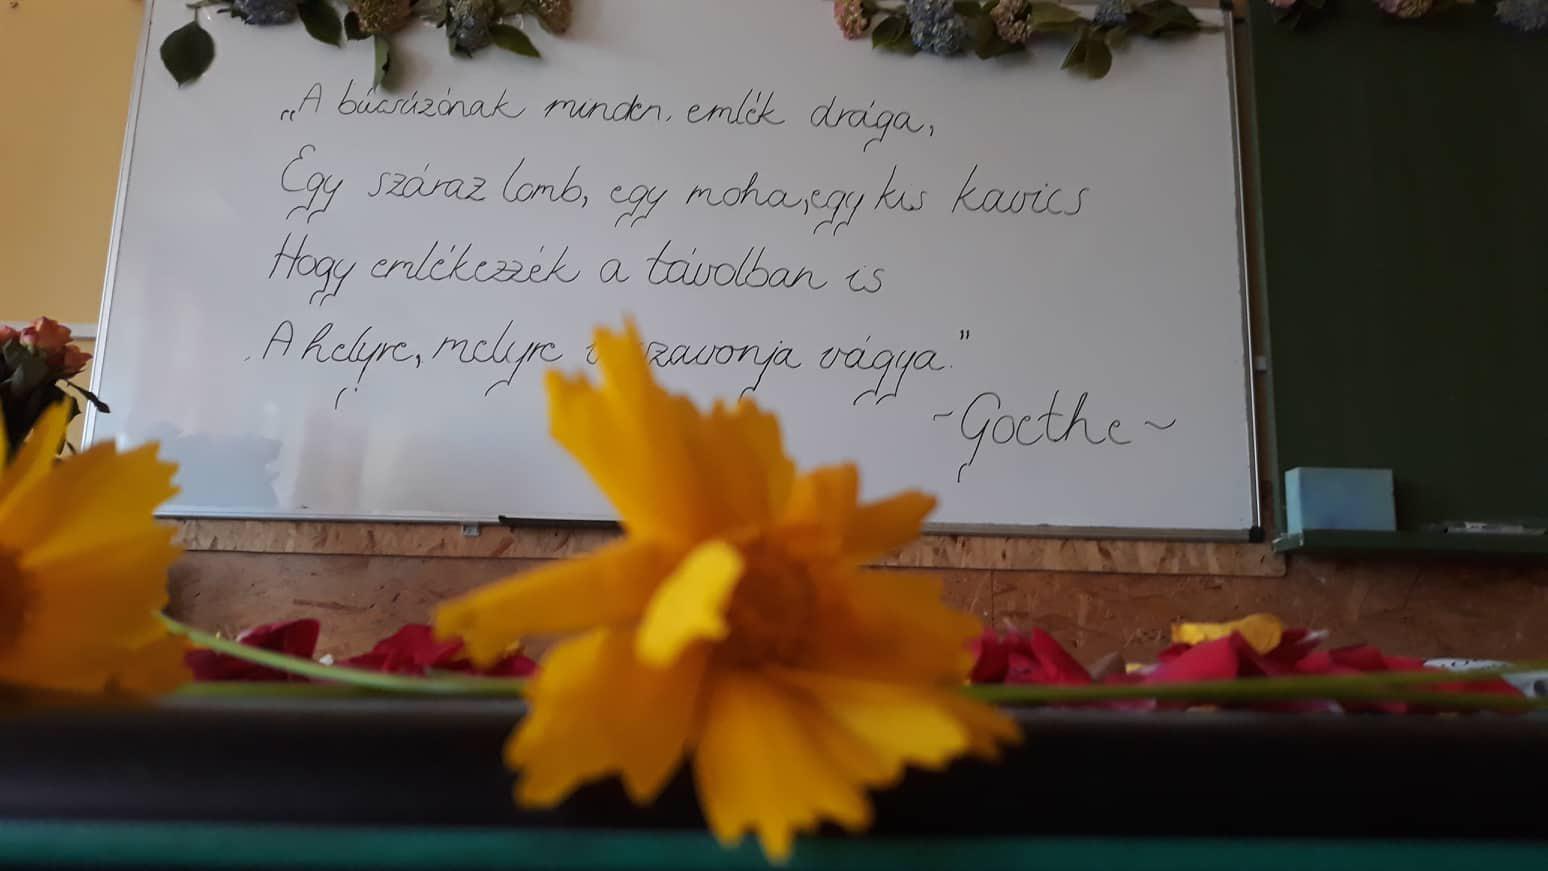 „A búcsúzónak minden emlék drága,
Egy száraz lomb, egy moha, egy kis kavics
Hogy emlékezzék a távolban is
A helyre, melyre visszavonja vágya."
~Goethe~